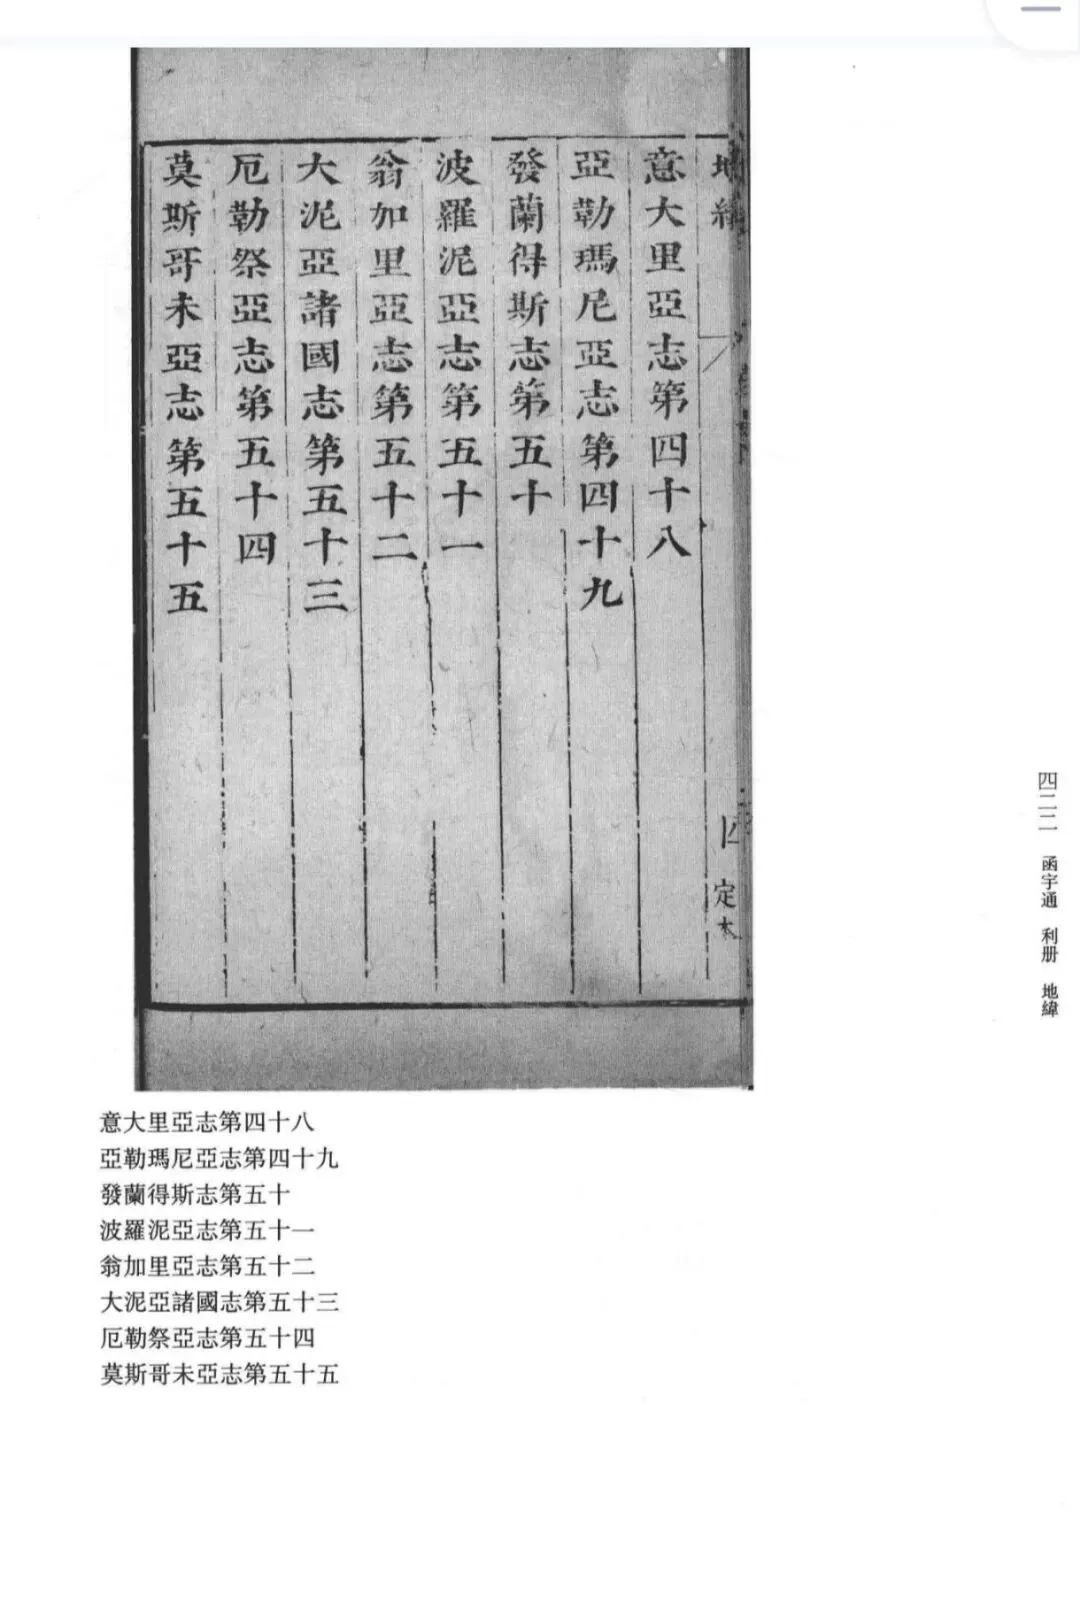 地緯
意大里亞志第四十八
亞勒瑪尼亞志第四十九
發蘭得斯志第五十
波羅泥亞志第五十一
翁加里亞志第五十二
大泥亞諸國志第五十三
厄勒祭亞志第五十四
莫斯哥未亞志第五十五
定本
四二二 函宇通 利册 地緯
意大里亞志第四十八
亞勒瑪尼亞志第四十九
發蘭得斯志第五十
波羅泥亞志第五十一
翁加里亞志第五十二
大泥亞諸國志第五十三
厄勒祭亞志第五十四
莫斯哥未亞志第五十五